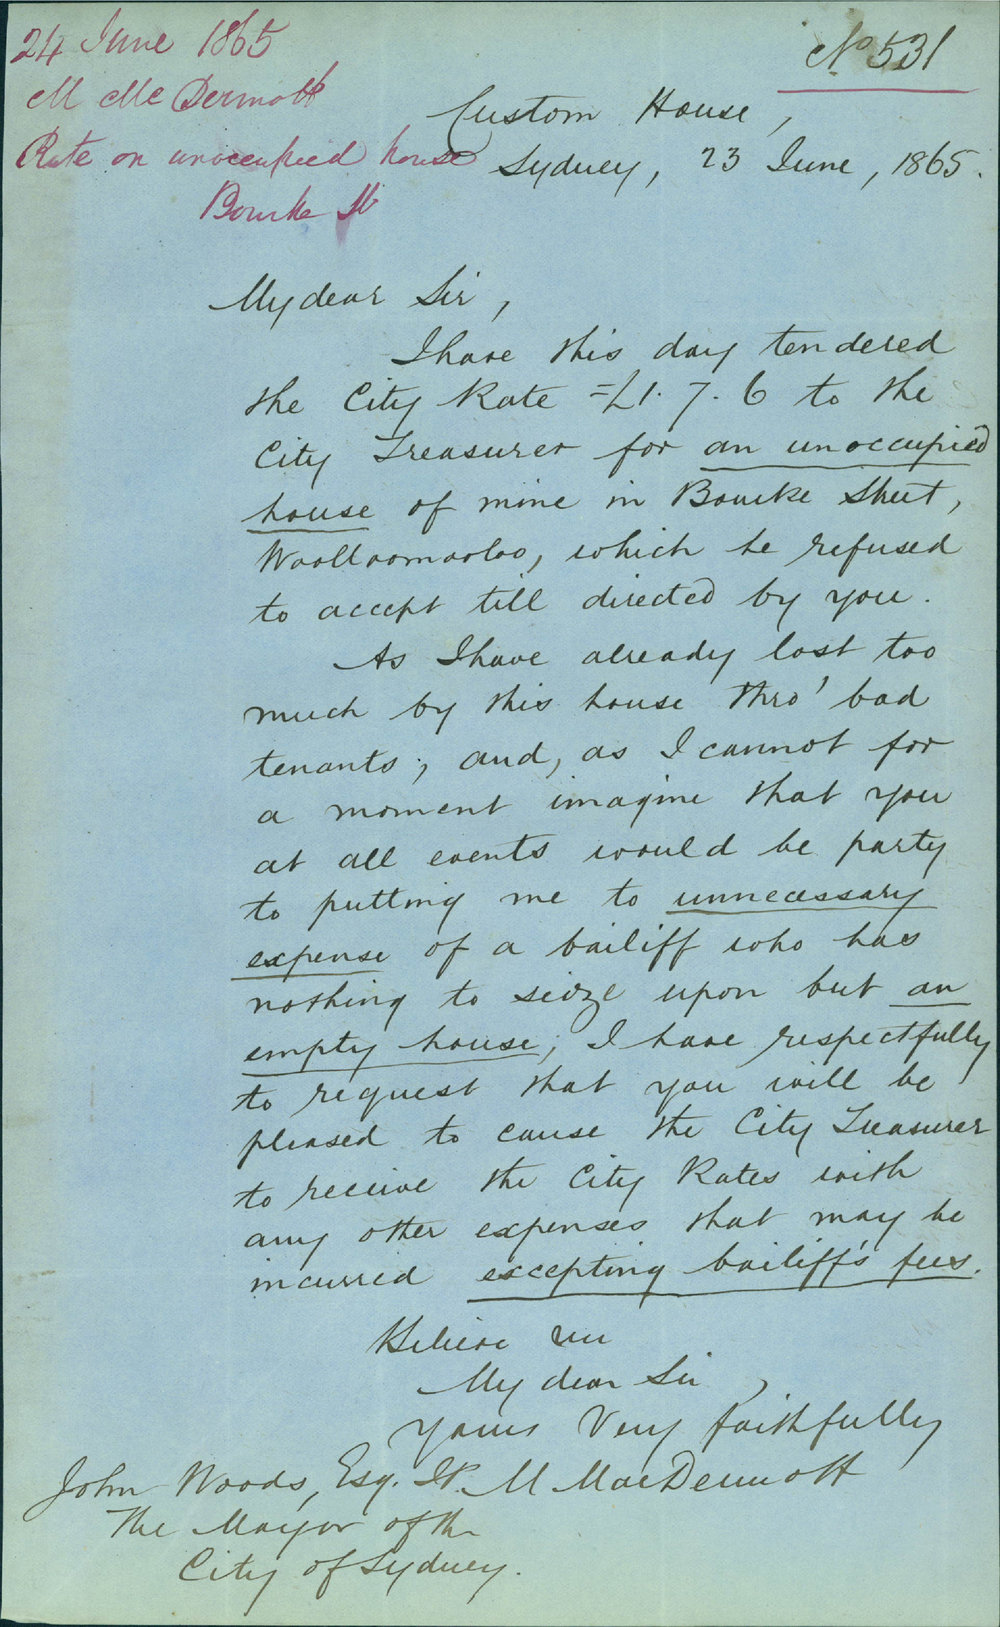 24 June 1865
M McDermott
Rate on unoccupied house
Bourke St
No 531
Custom House,
Sydney, 23 June, 1865.
My dear Sir,
I have this day tendered
the City Rate =£1.7.6 to the
City Treasurer for an unoccupied
house of mine in Bourke Street,
Woolloomooloo, which he refused
to accept till directed by you.
As I have already lost too
much by this house thro' bad
tenants; and, as I cannot for
a moment imagine that you
at all events would be party
to putting me to unnecessary
expense of a bailiff who has
nothing to seize upon but an
empty house; I have respectfully
to request that you will be
pleased to cause the City Treasurer
to receive the City Rates with
any other expenses that may be
incurred excepting bailiff's fees.
Believe me
My dear Sir,
Yours Very Faithfully
M MacDermott
John Woods, Esq. J.P.
The Mayor of the
City of Sydney.